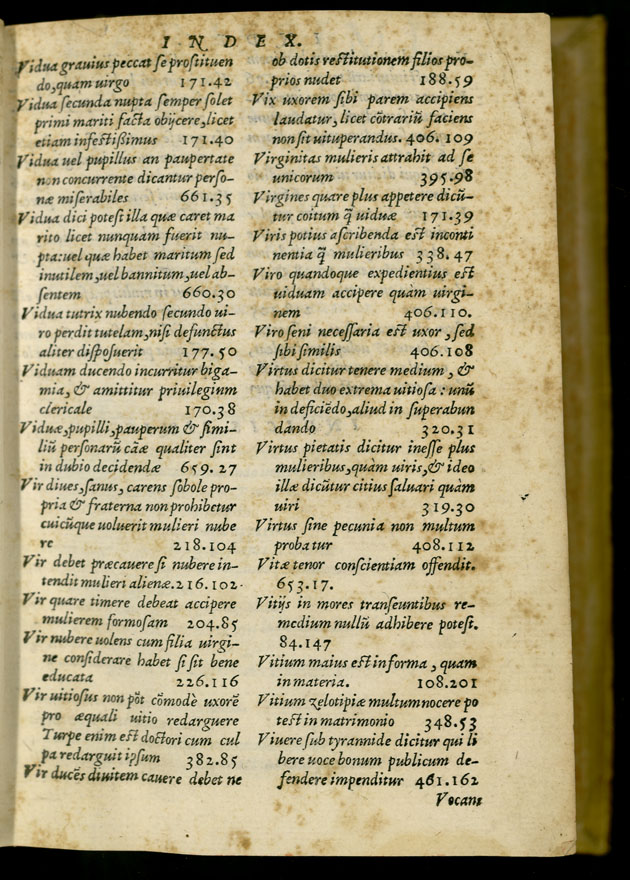 INDEX.
Vidua grauius peccat se prostituen
do, quam uirgo 171.42
Vidua secunda nupta semper solet
primi mariti facta obijcere, licet
etiam infestißimus 171.40
Vidua uel pupillus an paupertate
non concurrente dicantur perso-
næ miserabiles 661.35
Vidua dici potest illa quæ caret ma
rito licet nunquam fuerit nu-
pta: uel quæ habet maritum sed
inutilem, uel bannitum, uel ab-
sentem 660.30
Vidua tutrix nubendo secundo ui-
ro perdit tutelam, nisi defunctus
aliter disposuerit 177.50
Viduam ducendo incurritur biga-
mia, & amittitur priuilegium
clericale 170.38
Viduæ, pupilli, pauperum & simi-
liũ personarũ cãæ qualiter sint
in dubio decidendæ 659.27
Vir diues, sanus, carens sobole pro-
pria & fraterna non prohibetur
cuicũque uoluerit mulieri nube
re 218.104
Vir debet præcauere si nubere in-
tendit mulieri alienæ. 216.102.
Vir quare timere debeat accipere
mulierem formosam 204.85
Vir nubere uolens cum filia uirgi-
ne considerare habet si sit bene
educata 226.116
Vir uitiosus non põt cõmodè uxorẽ
pro æquali uitio redarguere
Turpe enim est doctori cum cul
pa redarguit ipsum 382.85
Vir ducẽs diuitem cauere debet ne
ob dotis restitutionem filios pro-
prios nudet 188.59
Vix uxorem sibi parem accipiens
laudatur, licet cõtrariũ faciens
non sit uituperandus. 406.109
Virginitas mulieris attrahit ad se
unicorum 395.98
Virgines quare plus appetere dicũ-
tur coitum q̃ uiduæ 171.39
Viris potius ascribenda est inconti
nentia q̃ mulieribus 338.47
Viro quandoque expedientius est
uiduam accipere quàm uirgi-
nem 406.110.
Viro seni necessaria est uxor, sed
sibi similis 406.108
Virtus dicitur tenere medium, &
habet duo extrema uitiosa: unũ
in deficiẽdo, aliud in superabun
dando 320.31
Virtus pietatis dicitur inesse plus
mulieribus, quàm uiris, & ideo
illæ dicũtur citius saluari quàm
uiri 319.30
Virtus sine pecunia non multum
probatur 408.112
Vitæ tenor conscientiam offendit.
653.17.
Vitijs in mores transeuntibus re-
medium nullũ adhibere potest.
84.147
Vitium maius est in forma, quam
in materia. 108.201
Vitium zelotipiæ multum nocere po
test in matrimonio 348.53
Viuere sub tyrannide dicitur qui li
bere uoce bonum publicum de-
fendere impenditur 461.162
Vocani